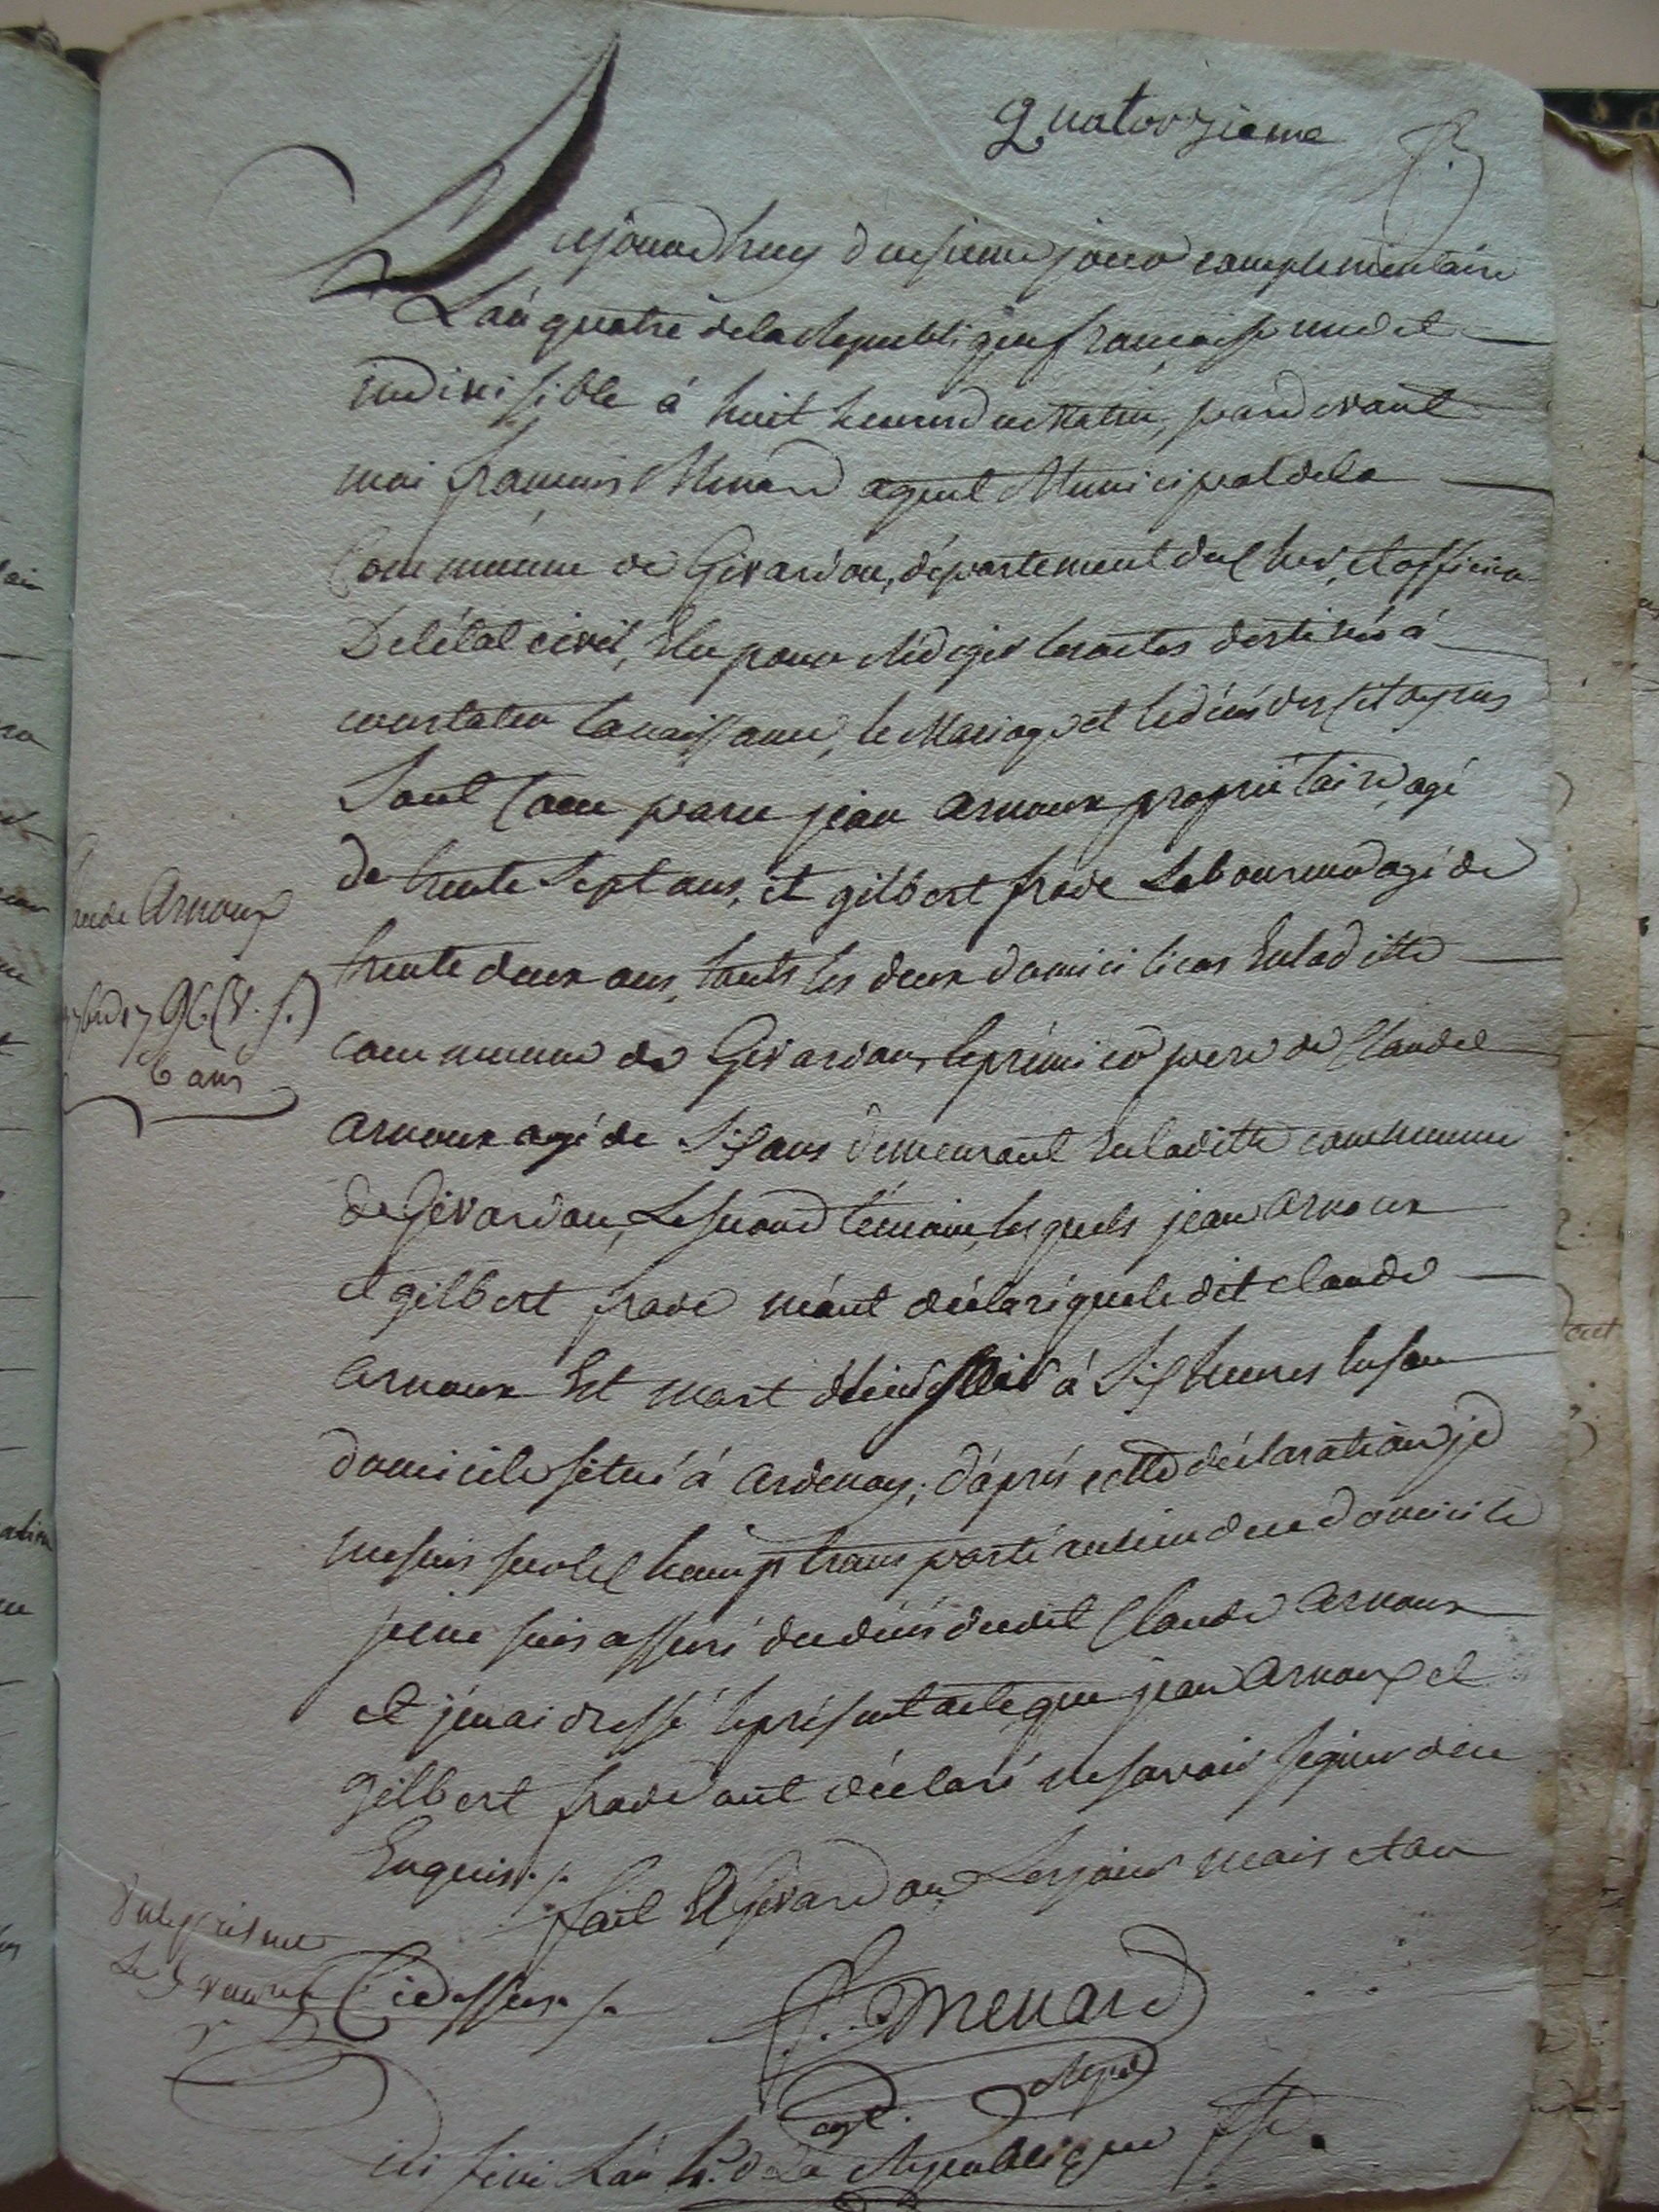 Quatorzieme
Aujourdhuy deusieme jour complementaire
L'an quatre de la Republique francaise une et
indivisible á huit heures du Matin, pardevant
moi francois Menard agent Municipal dela
Commune de Givardon, département du Cher, et officier
De l'état civil, Elu pour Rédiger les actes destinés á
constater la naissance, le Mariage et le décés des Citoyens
Sont Comparu jean arnoux propriétaire, agé
de trente Sept ans, et gilbert frade Laboureur agé de
trente deux ans, touts les deux domicilies En laditte
commune de Givardon, le prémier pere de Claude
arnoux agé de Six ans demeurant En laditte commune
de Givardon, Le second témoin, lesquels jean arnoux
et gilbert frade m'ont déclaré que le dit claude
arnoux Est mort à Six heures En son
domicile situé á ardenay; d'aprés cette déclaration je
me suis sur le Champ transporté au lieu de ce domicile
je me suis assuré du décés du dit Claude arnoux
et j'en ai dressé le présent acte que jean Arnoux et
gilbert frade ont déclaré ne savoir signer de ce
Enquis ./.
fait A Givardon Les jour mois et an
Cidessus ./.
f. Menard
agt.
Claude Arnoux
7bre 1796 (V. S.)
6 ans
ici fini L'an 4.e de La Republique fse.